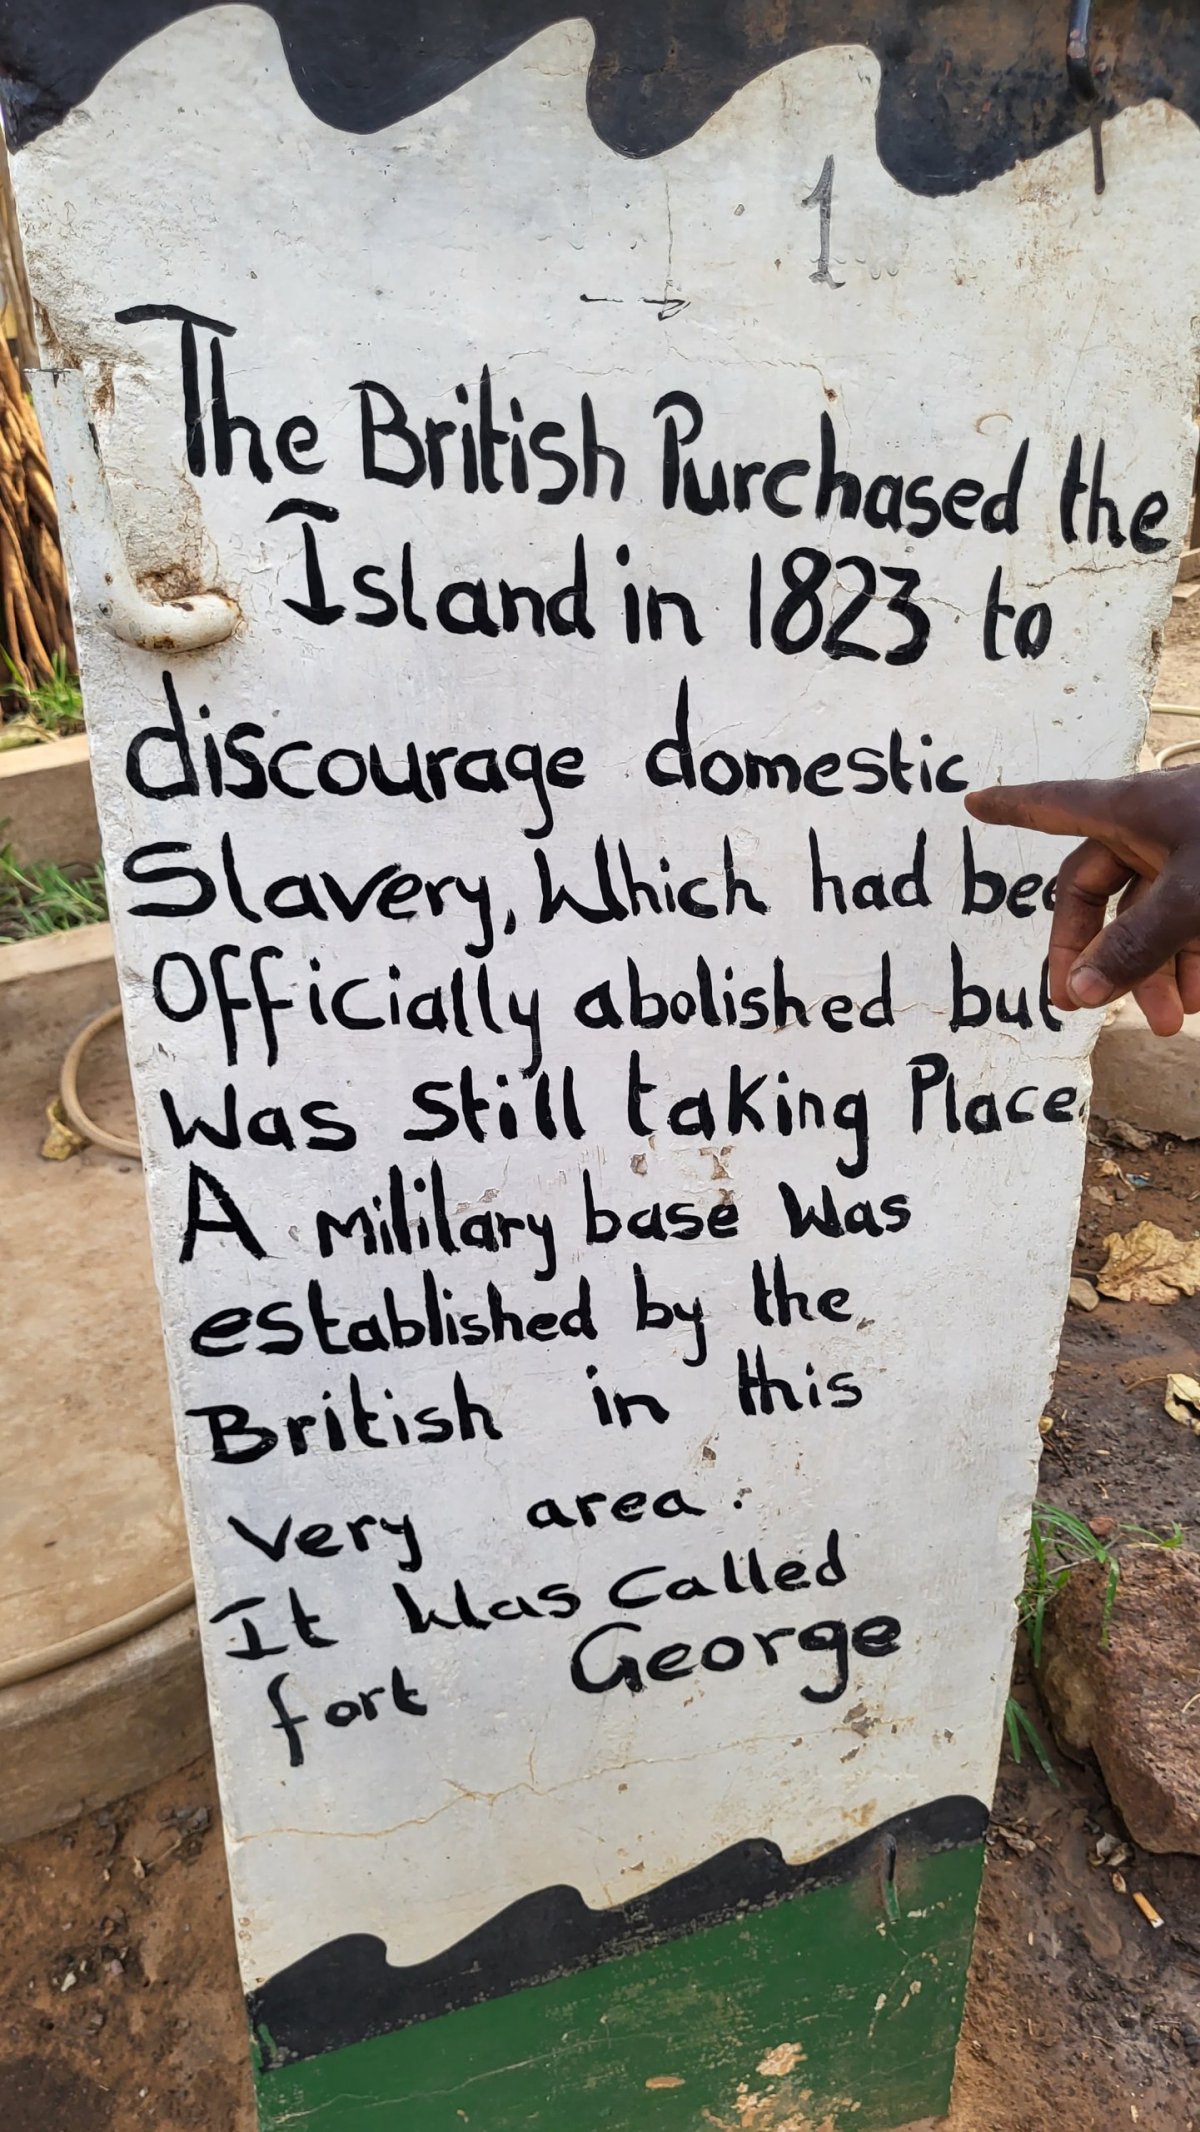 1
The British Purchased the
Island in 1823 to
discourage domestic
Slavery, Which had bee
Officially abolished but
Was Still taking Place.
A Mililary base Was
established by the
British in this
very area.
It Was Called
fort George